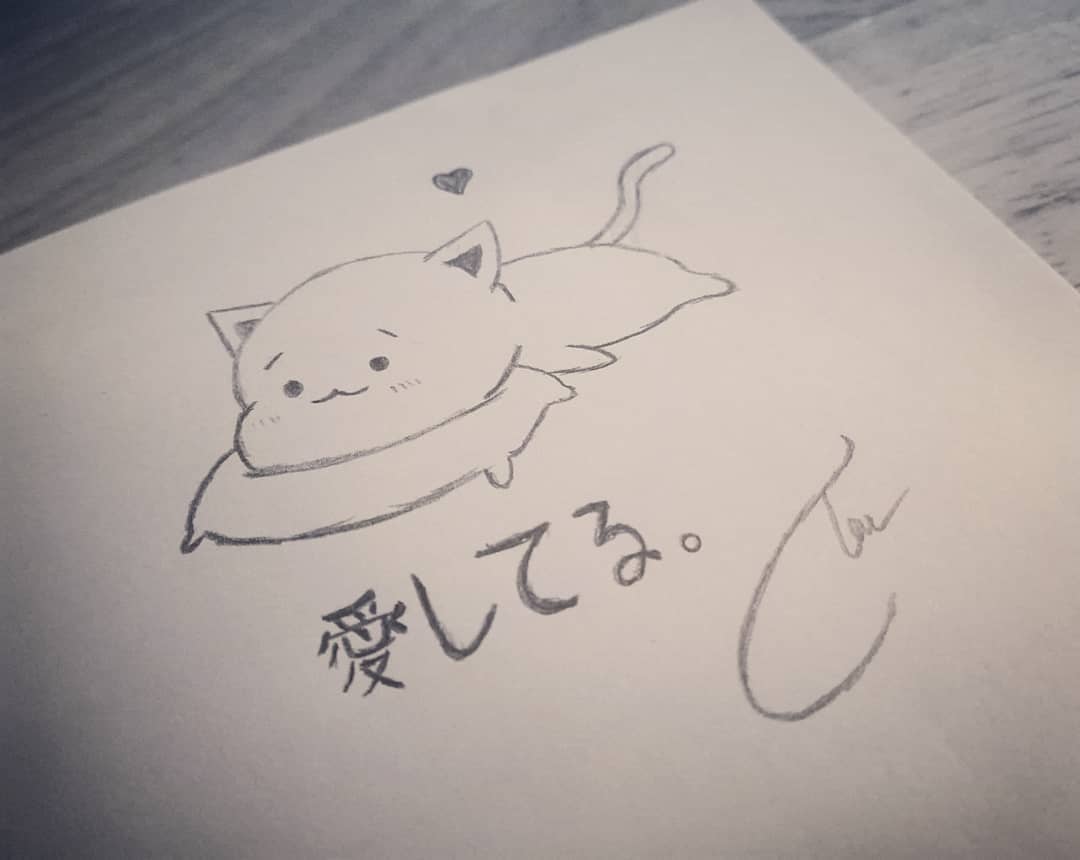 愛してる。